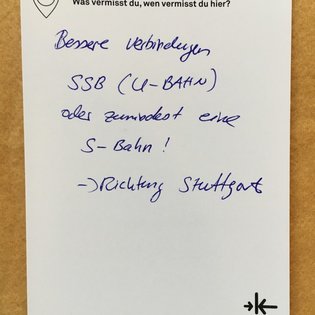 Was vermisst du, wen vermisst du hier?
Bessere Verbindungen
SSB (U-BAHN)
oder zumindest eine
S-Bahn!
-> Richtung Stuttgart